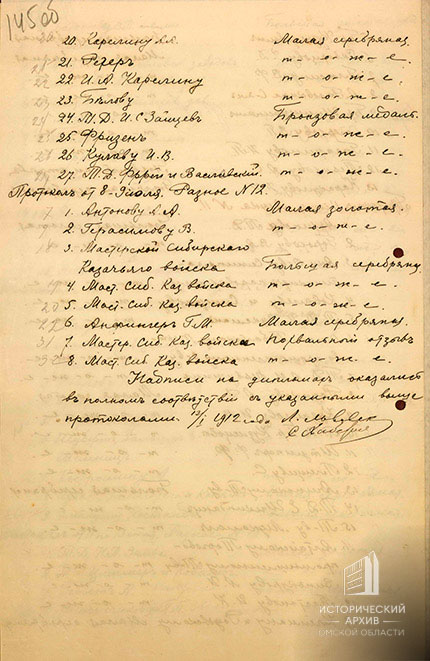 145 об
20. Карелину А.А. Малая серебряная.
21. Регеръ т-о-ж-е.
22 И.А. Карелину т-о-ж-е.
23. Бѣлову т-о-ж-е.
24. Т.Д. И.С. Зайцевъ Бронзовая медаль.
25. Фризенъ т-о-ж-е.
26 И.В. т-о-ж-е.
27. Т.Д. и т-о-ж-е.
Протоколъ от 8-9 июля. Разное N 12.
1. Антонову А.А. Малая золотая.
2. Герасимову В. т-о-ж-е.
3. Мастерской Сибирского
Казачьяго войска Большая серебряная
4. Маст. Сиб. Каз. войска т-о-ж-е.
5. Маст. Сиб. Каз. войска т-о-ж-е.
6. Анфингеръ Г.М. Малая серебряная.
7. Мастер. Сиб. Каз. войска Похвальный отзывъ
8. Маст. Сиб. Каз. войска т-о-ж-е.
Надписи на дипломахъ оказались
въ полномъ соотвѣтствiи съ указанными выше
протоколами. 1912 года
ИСТОРИЧЕСКИЙ
АРХИВ
ОМСКОЙ ОБЛАСТИ